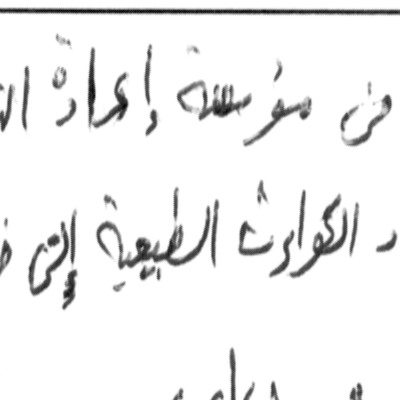 من مؤسسة إعادة
الكوارث الطبيعية إلتى